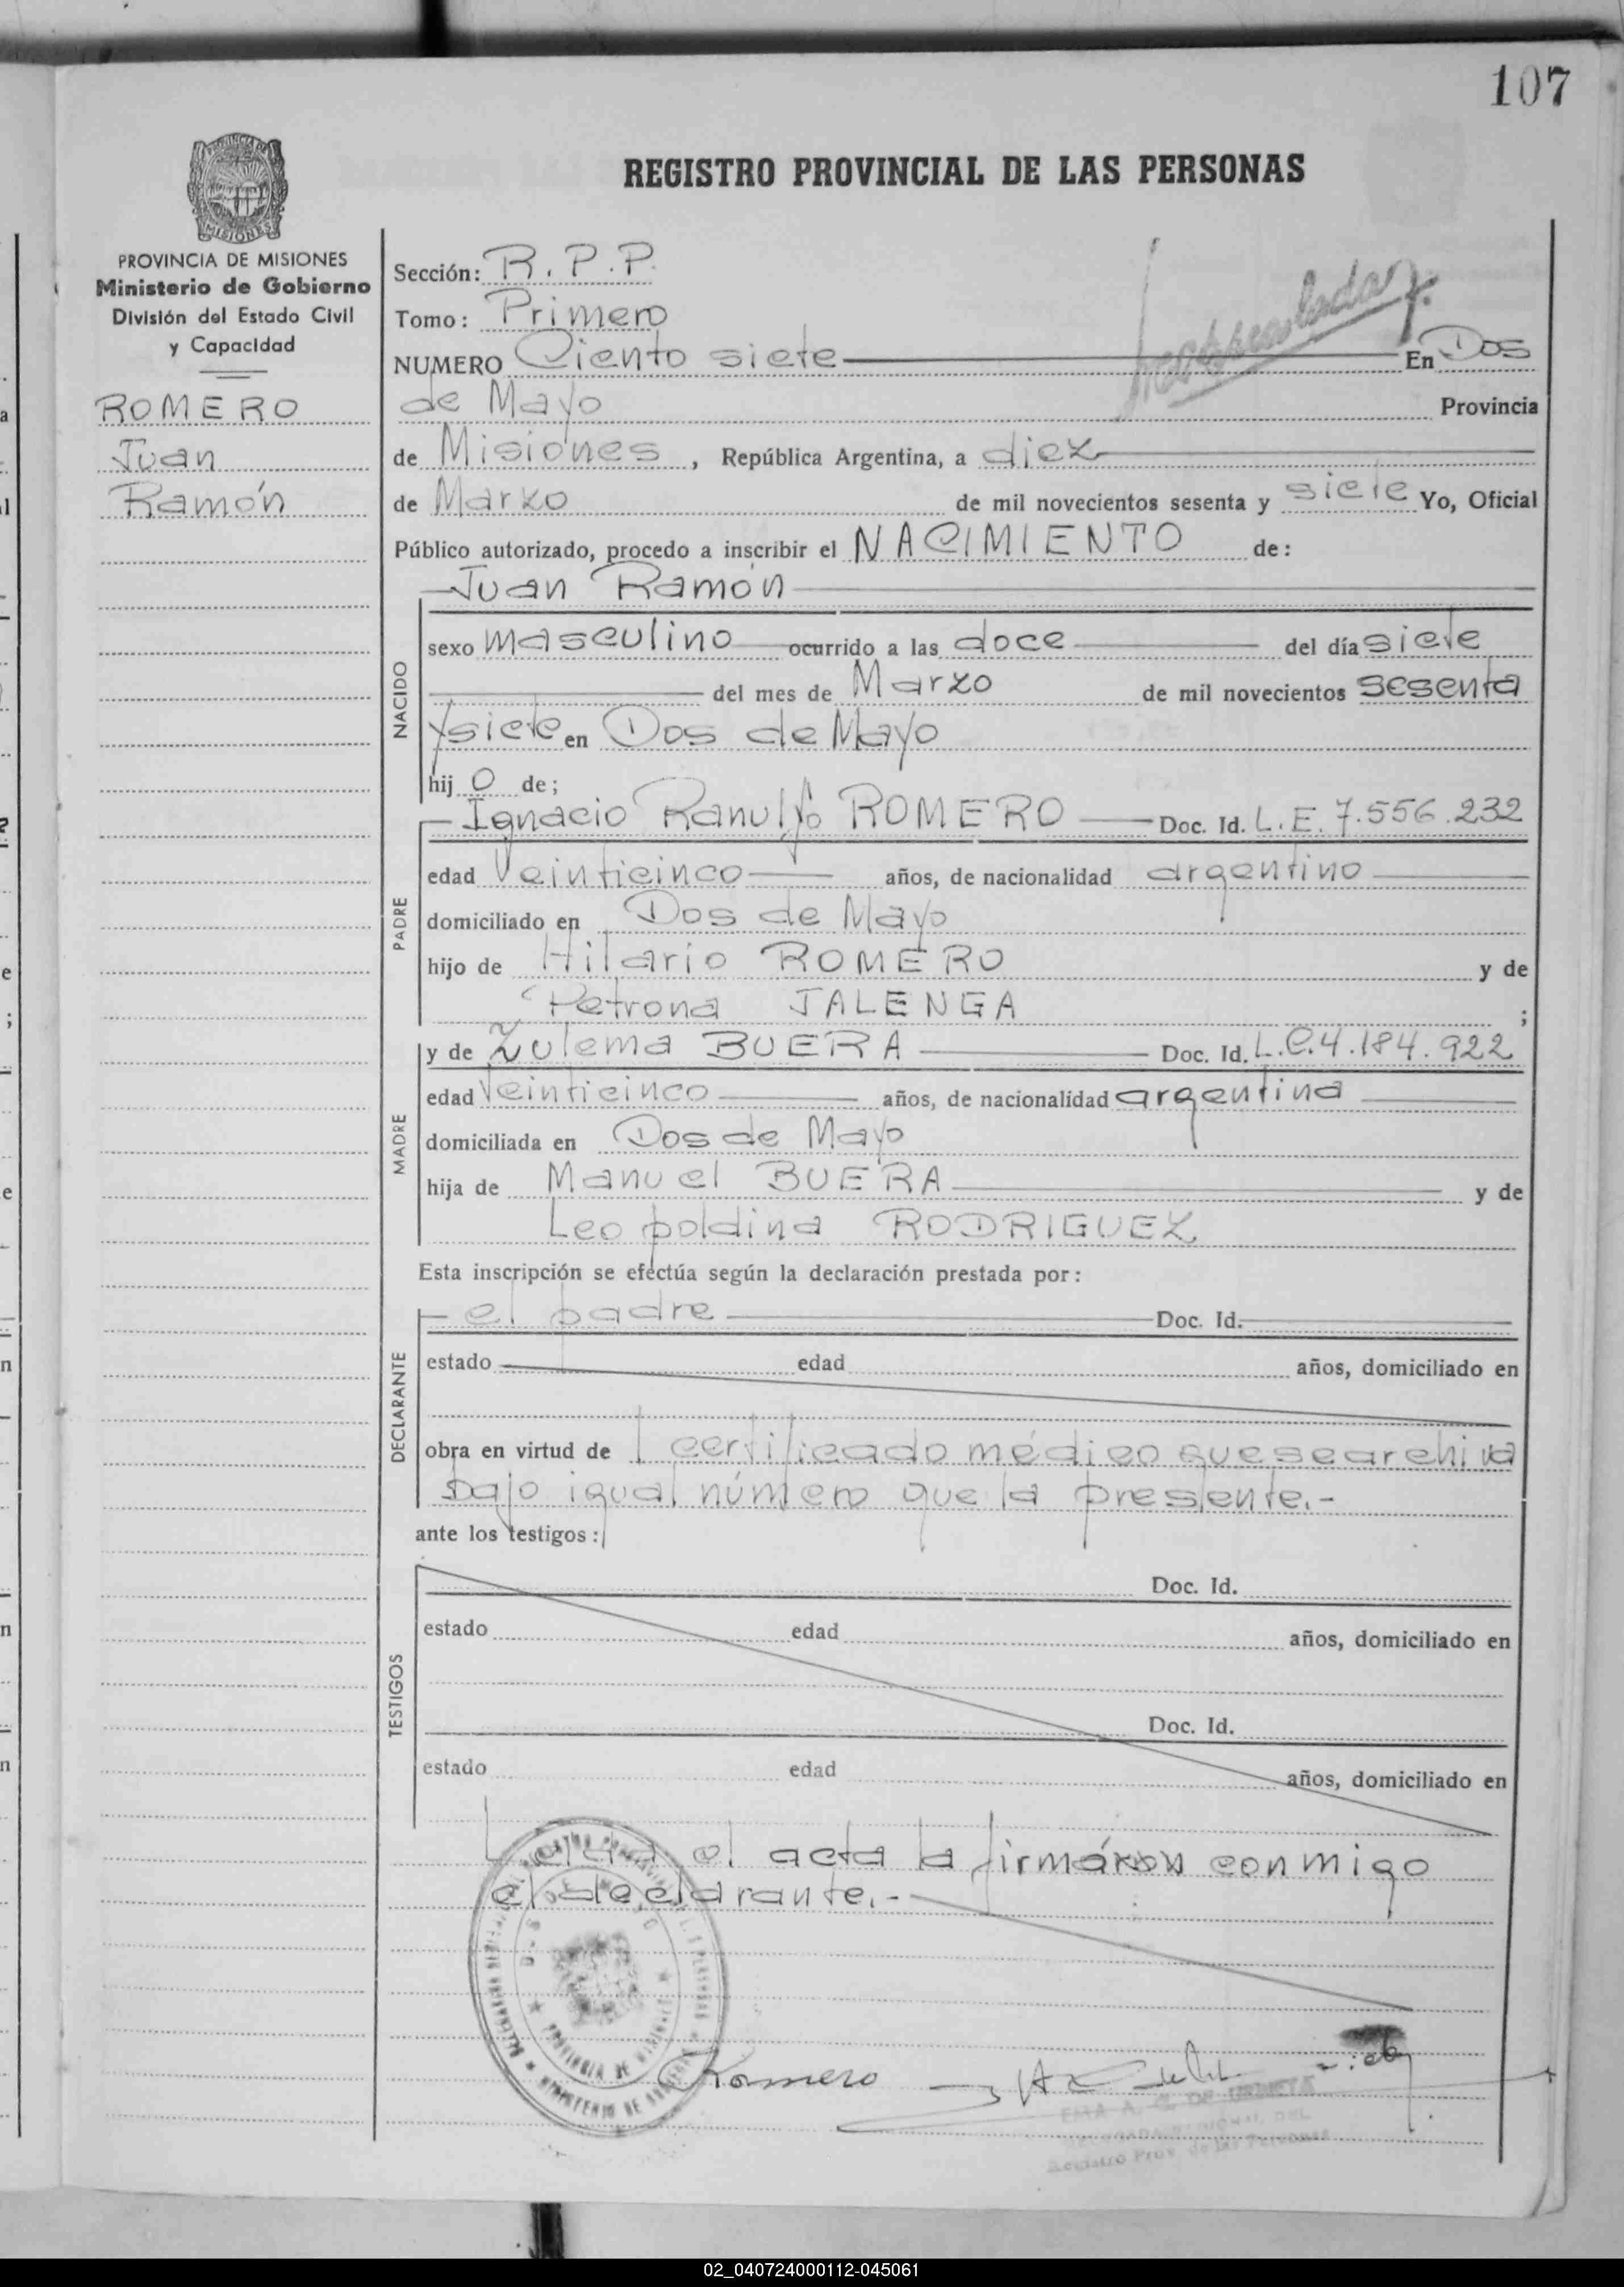 107
REGISTRO PROVINCIAL DE LAS PERSONAS
MISIONES
PROVINCIA DE MISIONES
Ministerio de Gobierno
División del Estado Civil
y Capacidad
ROMERO
Juan
Ramón
Sección: R.P.P.
Tomo: Primero
NUMERO Ciento siete En Dos
de Mayo Provincia
de Misiones, República Argentina, a diez
de Marzo de mil novecientos sesenta y siete Yo, Oficial
Público autorizado, procedo a inscribir el NACIMIENTO de:
Juan Ramón
NACIDO
sexo masculino ocurrido a las doce del día siete
del mes de Marzo de mil novecientos sesenta
y siete en Dos de Mayo
hij o de;
Ignacio Ranulfo ROMERO Doc. Id. L.E. 7.556.232
PADRE
edad Veinticinco años, de nacionalidad argentino
domiciliado en Dos de Mayo
hijo de Hilario ROMERO y de
Petrona JALENGA ;
y de Zulema BUERA Doc. Id. L.C. 4.184.922
MADRE
edad Veinticinco años, de nacionalidad argentina
domiciliada en Dos de Mayo
hija de Manuel BUERA y de
Leopoldina RODRIGUEZ
Esta inscripción se efectúa según la declaración prestada por:
el padre Doc. Id.
DECLARANTE
estado edad años, domiciliado en
obra en virtud de l certificado médico que se archiva
bajo igual número que la presente.-
ante los testigos:
TESTIGOS
Doc. Id.
estado edad años, domiciliado en
Doc. Id.
estado edad años, domiciliado en
Leída el acta la firmáron conmigo
el declarante.-
Romero
PROVINCIA DE MISIONES
EMA A. G. DE URRIETA
Registro Prov. de las Personas
02_040724000112-045061